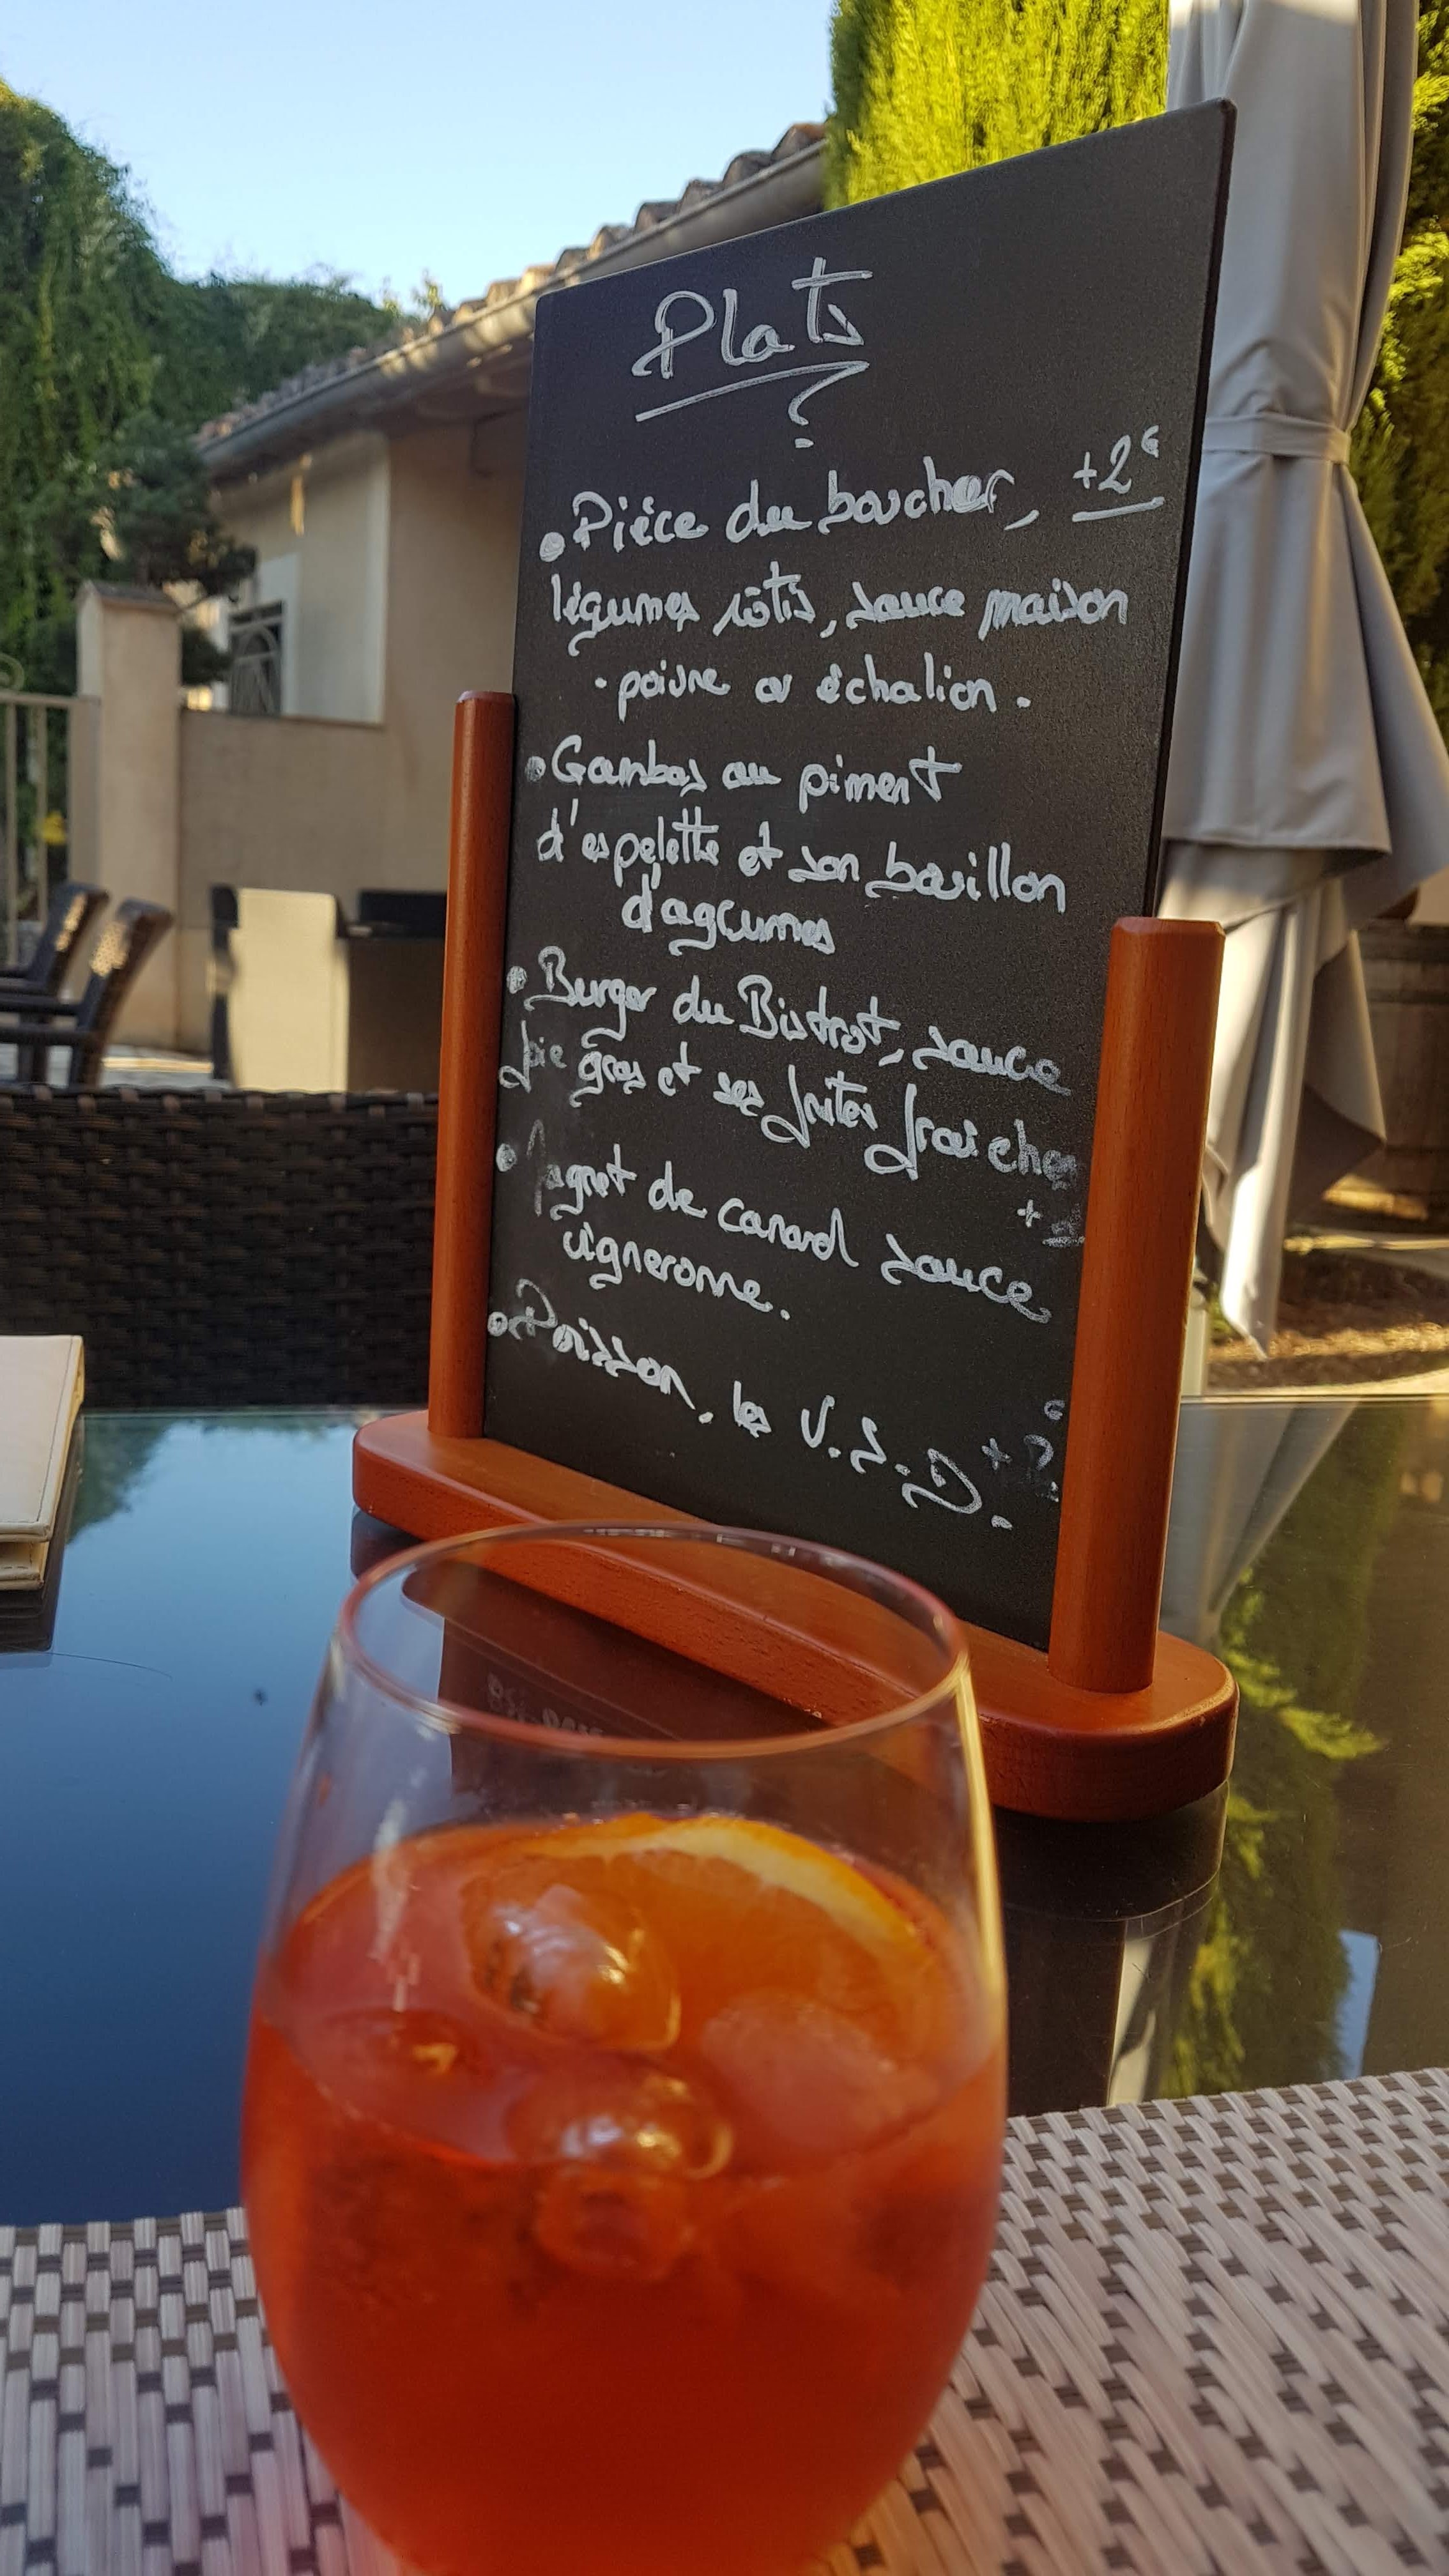 Plats
• Pièce du boucher, +2€
légumes rôtis, sauce maison
- poivre ou échalion -
• Gambas au piment
d'espelette et son bouillon
d'agrumes
• Burger du Bistrot, sauce
foie gras et ses frites fraiches
• Magret de canard sauce +
vigneronne.
• Poisson, les V.S.D. +2€